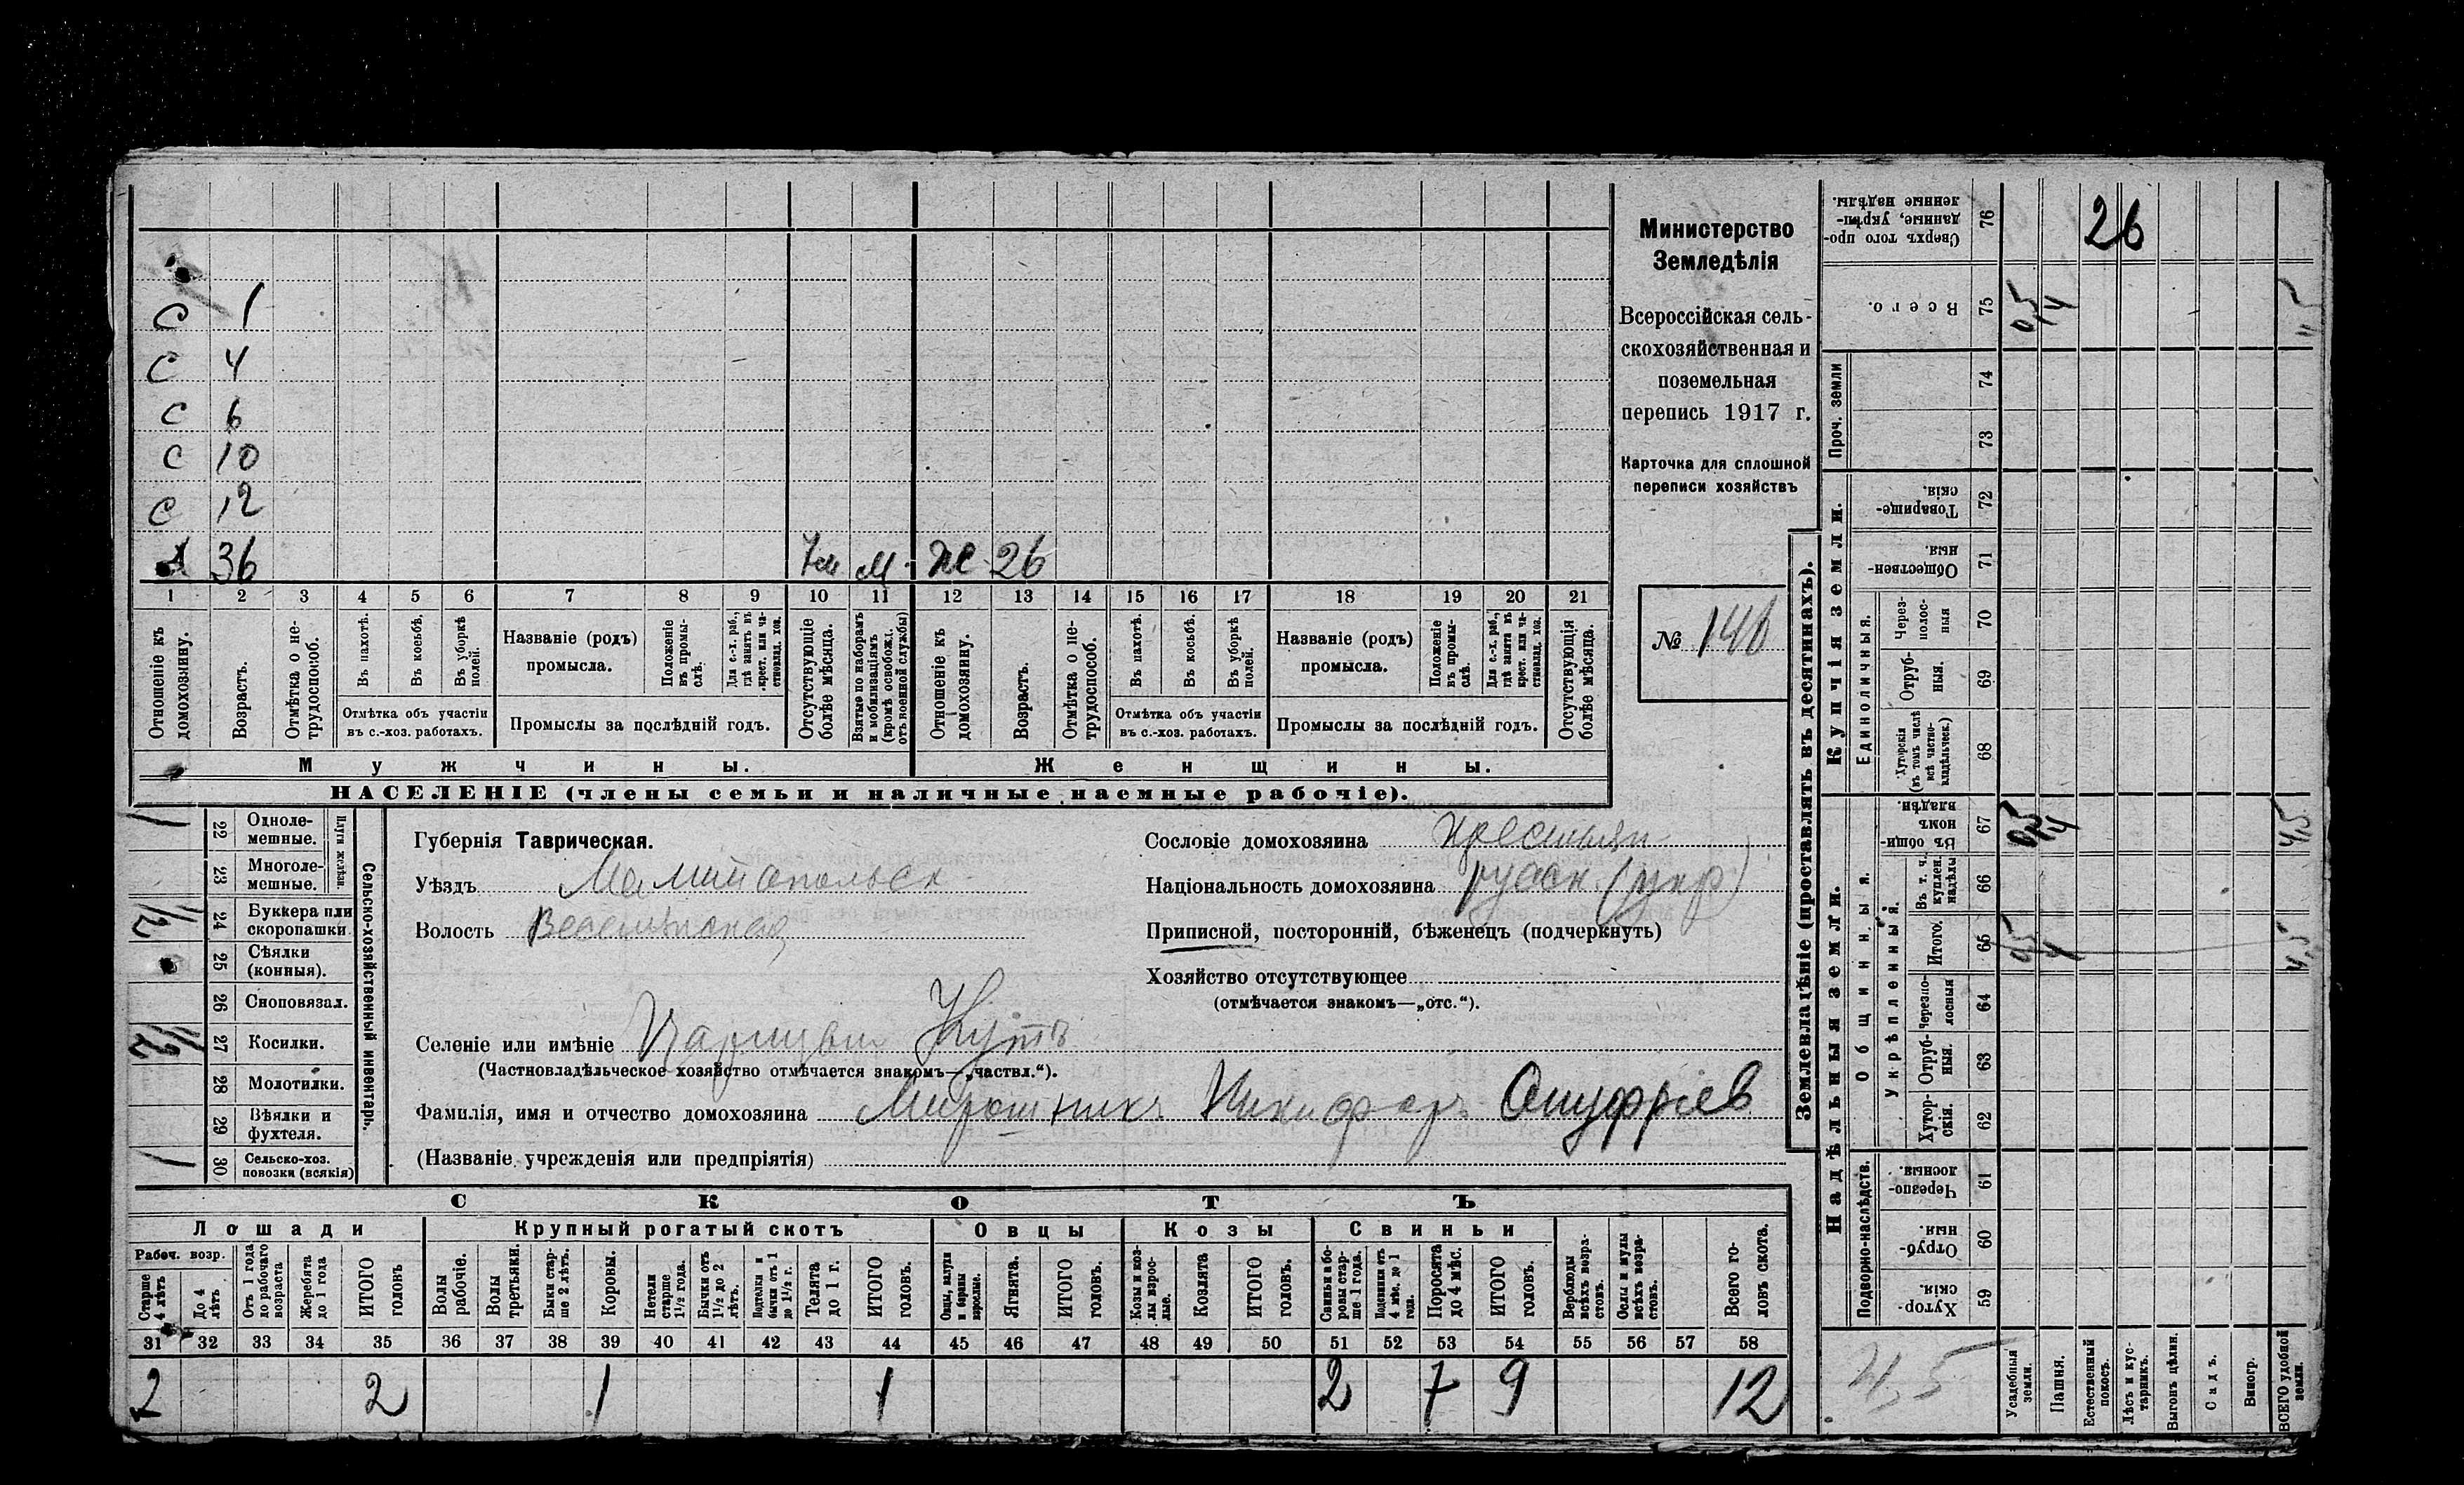 Министерство
Земледѣлія
Всероссійская сель-
скохозяйственная и
поземельная
перепись 1917 г.
Карточка для сплошной
переписи хозяйствъ
№ 146
С 1
С 4
С 6
С 10
С 12
36 м. Ж 26
1 2 3 4 5 6 7 8 9 10 11 12 13 14 15 16 17 18 19 20 21
Отношеніе къ домохозяину.
Возрастъ.
Отмѣтка о не-трудоспособ.
Въ пахотѣ.
Въ косьбѣ.
Въ уборкѣ полей.
Отмѣтка объ участіи
въ с.-хоз. работахъ.
Названіе (родъ)
промысла.
Положеніе въ промы-слѣ.
Для с.-х. раб., гдѣ занятъ въ крест. или ча-стновлад. хоз.
Промыслы за послѣдній годъ.
Отсутствующіе болѣе мѣсяца.
Взятые по наборамъ и мобилизаціямъ (кромѣ освобожд. отъ военной службы)
Отношеніе къ домохозяину.
Возрастъ.
Отмѣтка о не-трудоспособ.
Въ пахотѣ.
Въ косьбѣ.
Въ уборкѣ полей.
Отмѣтка объ участіи
въ с.-хоз. работахъ.
Названіе (родъ)
промысла.
Положеніе въ промы-слѣ.
Для с.-х. раб., гдѣ занята въ крест. или ча-стновлад. хоз.
Промыслы за послѣдній годъ.
Отсутствующія болѣе мѣсяца.
Мужчины.
Женщины.
НАСЕЛЕНІЕ (члены семьи и наличные наемные рабочіе).
Сельско-хозяйственный инвентарь.
Плуги желѣзн.
22 Одноле-мешные.
23 Многоле-мешные.
24 Буккера или скоропашки
25 Сѣялки (конныя).
26 Сноповязал.
27 Косилки.
28 Молотилки.
29 Вѣялки и фухтеля.
30 Сельско-хоз. повозки (всякія)
Губернія Таврическая.
Уѣздъ Мелитопольск
Волость Веселовская
Селеніе или имѣніе Царицын Кутъ
(Частновладѣльческое хозяйство отмѣчается знакомъ—„частвл.“).
Фамилія, имя и отчество домохозяина Мирошникъ Никифоръ Онуфріев
(Названіе учрежденія или предпріятія)
Сословіе домохозяина крестьян
Національность домохозяина русск (укр)
Приписной, посторонній, бѣженецъ (подчеркнуть)
Хозяйство отсутствующее
(отмѣчается знакомъ—„отс.“).
СКОТЪ
Лошади
Крупный рогатый скотъ
Овцы
Козы
Свиньи
Рабоч. возр.
Старше 4 лѣтъ
До 4 лѣтъ
Отъ 1 года до рабочаго возраста
Жеребята до 1 года
ИТОГО головъ
Волы рабочіе.
Волы третьяки.
Быки стар-ше 2 лѣтъ.
Коровы.
Нетели старше 1½ года.
Бычки отъ 1½ до 2 лѣтъ.
Подтелки и бычки отъ 1 до 1½ г.
Телята до 1 г.
ИТОГО головъ.
Овцы, валухи и бараны взрослые.
Ягнята.
ИТОГО головъ.
Козы и коз-лы взрос-лые.
Козлята
ИТОГО головъ.
Свиньи и бо-ровы стар-ше 1 года.
Подсвинки отъ 4 мѣс. до 1 года.
Поросята до 4 мѣс.
ИТОГО головъ.
Верблюды всѣхъ возра-стовъ.
Ослы и мулы всѣхъ возра-стовъ.
Всего го-ловъ скота.
31 32 33 34 35 36 37 38 39 40 41 42 43 44 45 46 47 48 49 50 51 52 53 54 55 56 57 58
2 2 1 1 2 7 9 12
Землевладѣніе (проставлять въ десятинахъ).
Надѣльныя земли.
Купчія земли.
Проч. земли
Общинныя.
Укрѣпленныя.
Единоличныя.
Подворно-наслѣдств.
76 Сверхъ того про-данные, укрѣп-ленные надѣлы. 26
75 Всего.
74
73
72 Товарище-скія.
71 Обществен-ныя.
70 Через-полос-ныя
69 Отруб-ныя.
68 Хуторскія (въ томъ числѣ всѣ частно-владѣльческ.)
67 Въ общи-номъ владѣн. 4,5
66 Въ т. ч. куплен. надѣлы
65 Итого. 4,5
64 Черезпо-лосныя
63 Отруб-ныя.
62 Хутор-скія.
61 Черезпо-лосныя.
60 Отруб-ныя.
59 Хутор-скія.
4,5
Усадебныя земли.
Пашня.
Естественный покосъ.
Лѣсъ и кус-тарникъ.
Выгонъ цѣлин.
Садъ.
Виногр.
ВСЕГО удобной земли.